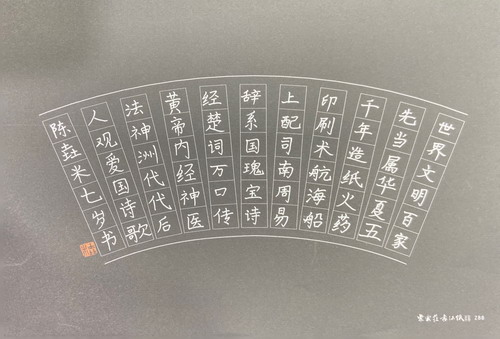 世界文明百家
先当属华夏五
千年造纸火药
印刷术航海船
上配司南周易
辞系国瑰宝诗
经楚词万口传
黄帝内经神医
法神洲代代后
人观爱国诗歌
陈垚米七岁书